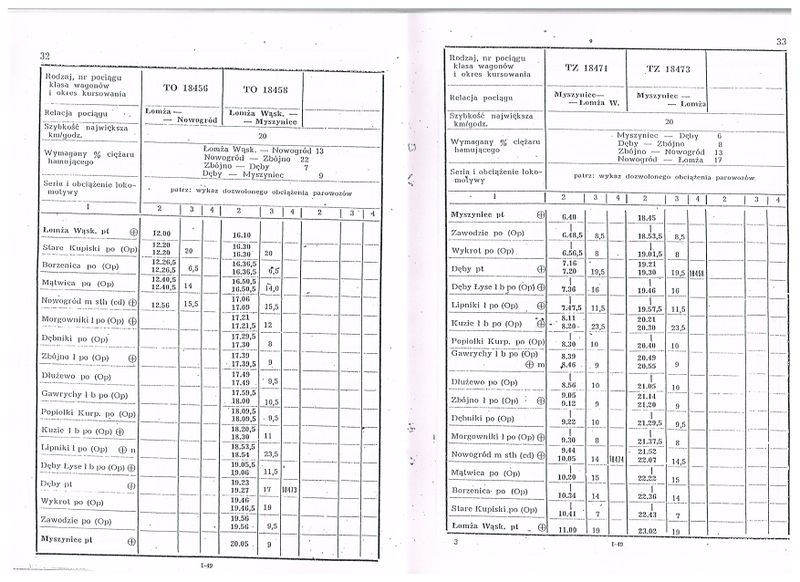 32
Rodzaj, nr pociągu
klasa wagonów
i okres kursowania
TO 18456
TO 18458
Relacja pociągu
Łomża —
— Nowogród
Łomża Wąsk. —
— Myszyniec
Szybkość największa
km/godz.
20
Wymagany % ciężaru
hamującego
Łomża Wąsk. — Nowogród 13
Nowogród — Zbójno 22
Zbójno — Dęby 7
Dęby — Myszyniec 9
Seria i obciążenie loko-
motywy
patrz: wykaz dozwolonego obciążenia parowozów
1 2 3 4 2 3 4 2 3 4
Łomża Wąsk. pt ⊕ 12.00 16.10
Stare Kupiski po (Op) 12.20 12.20 20 16.30 16.30 20
Borzenica po (Op) 12.26,5 12.26,5 6,5 16.36,5 16.36,5 6,5
Mątwica po (Op) 12.40,5 12.40,5 14 16.50,5 16.50,5 14,0
Nowogród m sth (cd) ⊕ 12.56 15,5 17.06 17.09 15,5
Morgowniki l po (Op) ⊕ 17.21 17.21,5 12
Dębniki po (Op) 17.29,5 17.30 8
Zbójno l po (Op) ⊕ 17.39 17.39,5 9
Dłużewo po (Op) 17.49 17.49 9,5
Gawrychy l b po (Op) 17.59,5 18.00 10,5
Popiołki Kurp. po (Op) 18.09,5 18.09,5 9,5
Kuzie l b po (Op) ⊕ 18.20,5 18.30 11
Lipniki l po (Op) ⊕ n 18.53,5 18.54 23,5
Dęby Łyse l b po (Op) ⊕ 19.05,5 19.06 11,5
Dęby pt ⊕ 19.23 19.27 17 18473
Wykrot po (Op) 19.46 19.46,5 19
Zawodzie po (Op) 19.56 19.56 9,5
Myszyniec pt ⊕ 20.05 9
I-49
33
Rodzaj, nr pociągu
klasa wagonów
i okres kursowania
TZ 18471
TZ 18473
Relacja pociągu
Myszyniec—
— Łomża W.
Myszyniec —
— Łomża
Szybkość największa
km/godz.
20
Wymagany % ciężaru
hamującego
Myszyniec — Dęby 6
Dęby — Zbójno 8
Zbójno — Nowogród 13
Nowogród — Łomża 17
Seria i obciążenie loko-
motywy
patrz: wykaz dozwolonego obciążenia parowozów
1 2 3 4 2 3 4 2 3 4
Myszyniec pt ⊕ 6.40 18.45
Zawodzie po (Op) | 6.48,5 8,5 | 18.53,5 8,5
Wykrot po (Op) | 6.56,5 8 | 19.01,5 8
Dęby pt ⊕ 7.16 7.20 19,5 19.21 19.30 19,5 18458
Dęby Łyse l b po (Op) ⊕ | 7.36 16 | 19.46 16
Lipniki l po (Op) ⊕ | 7.47,5 11,5 | 19.57,5 11,5
Kuzie l b po (Op) ⊕ 8.11 8.20 23,5 20.21 20.30 23,5
Popiołki Kurp. po (Op) | 8.30 10 | 20.40 10
Gawrychy l b po (Op)
⊕ m 8.39 8.46 9 20.49 20.55 9
Dłużewo po (Op) | 8.56 10 | 21.05 10
Zbójno l po (Op) ⊕ 9.05 9.12 9 21.14 21.20 9
Dębniki po (Op) | 9.22 10 | 21.29,5 9,5
Morgowniki l po (Op) ⊕ | 9.30 8 | 21.37,5 8
Nowogród m sth (cd) ⊕ 9.44 10.05 14 18424 21.52 22.07 14,5
Mątwica po (Op) | 10.20 15 | 22.22 15
Borzenica po (Op) | 10.34 14 | 22.36 14
Stare Kupiski po (Op) | 10.41 7 | 22.43 7
Łomża Wąsk. pt ⊕ 11.00 19 23.02 19
3
I-49